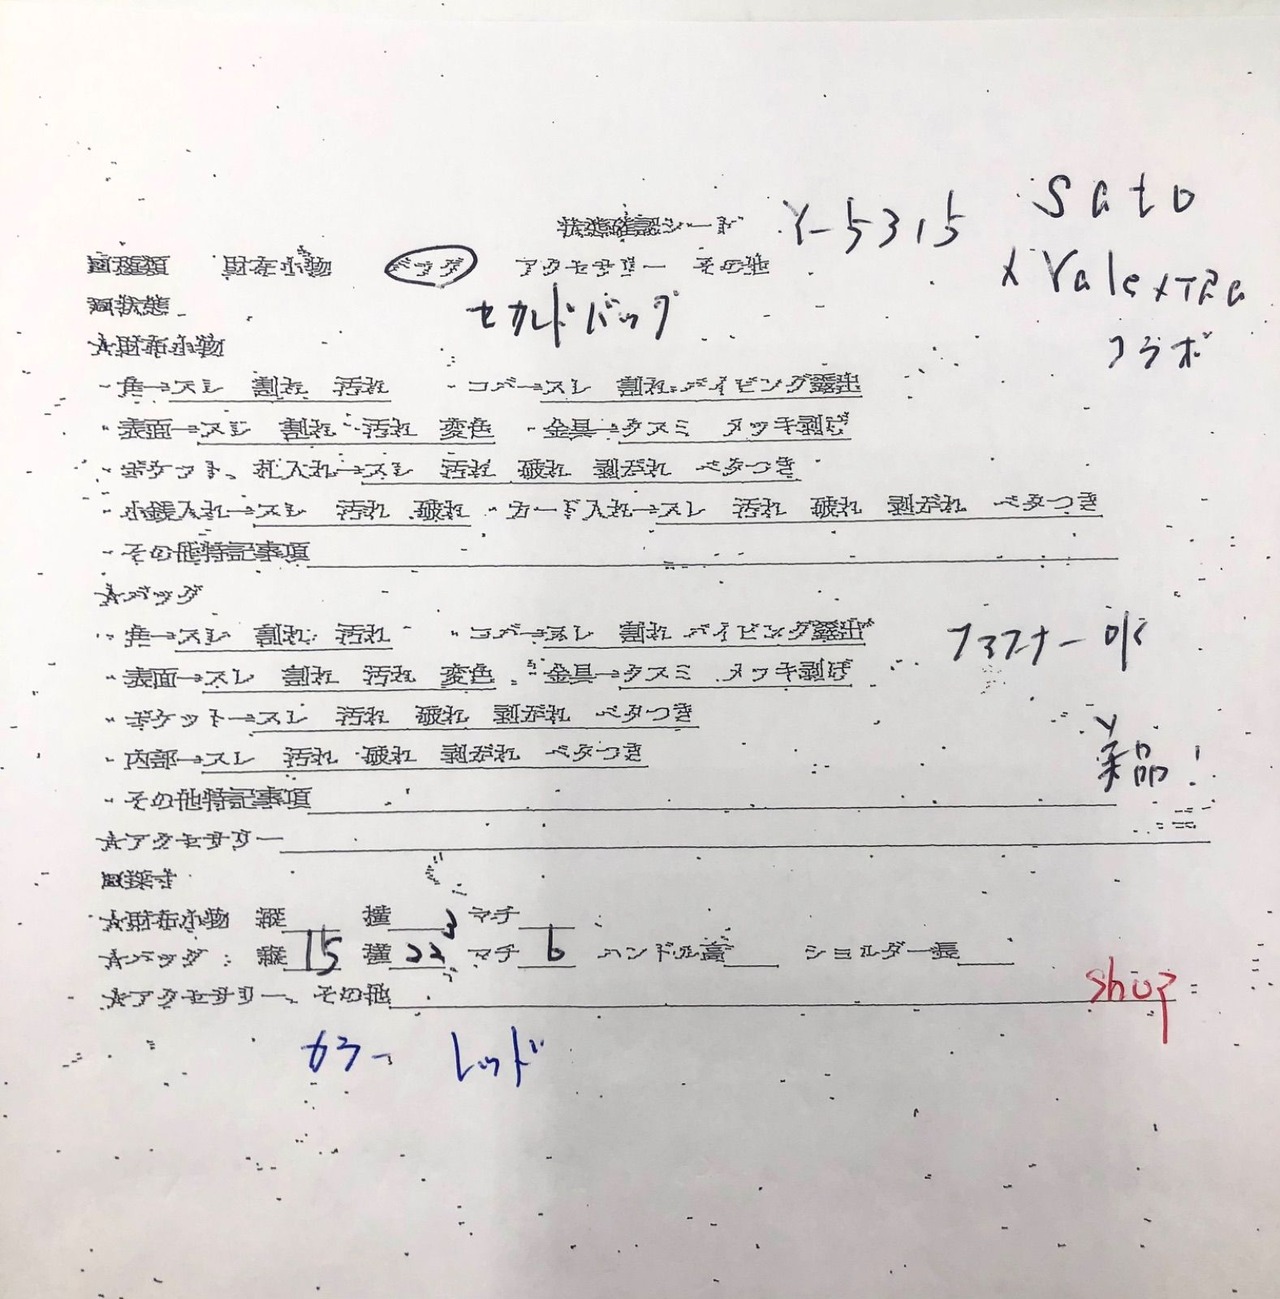 状態確認シート Y-5315 Sato
回種類 財布小物 バッグ アクセサリー その他
× ValexTRa
回状態
セカンドバッグ
コラボ
☆財布小物
・角→スレ 割れ 汚れ ・コバ→スレ 割れ パイピング露出
・表面→スレ 割れ 汚れ 変色 ・金具→クスミ メッキ剥げ
・ポケット、札入れ→スレ 汚れ 破れ 剥がれ ベタつき
・小銭入れ→スレ 汚れ 破れ ・カード入れ→スレ 汚れ 破れ 剥がれ ベタつき
・その他特記事項
☆バッグ
・角→スレ 割れ 汚れ ・コバ→スレ 割れ パイピング露出
ファスナー OK
・表面→スレ 割れ 汚れ 変色 ・金具→クスミ メッキ剥げ
・ポケット→スレ 汚れ 破れ 剥がれ ベタつき
・内部→スレ 汚れ 破れ 剥がれ ベタつき
新品!
・その他特記事項
☆アクセサリー
回採寸
☆財布小物 縦 横 マチ
☆バッグ:縦 15 横 22 マチ 6 ハンドル高 ショルダー長
☆アクセサリー、その他
shop
カラー レッド